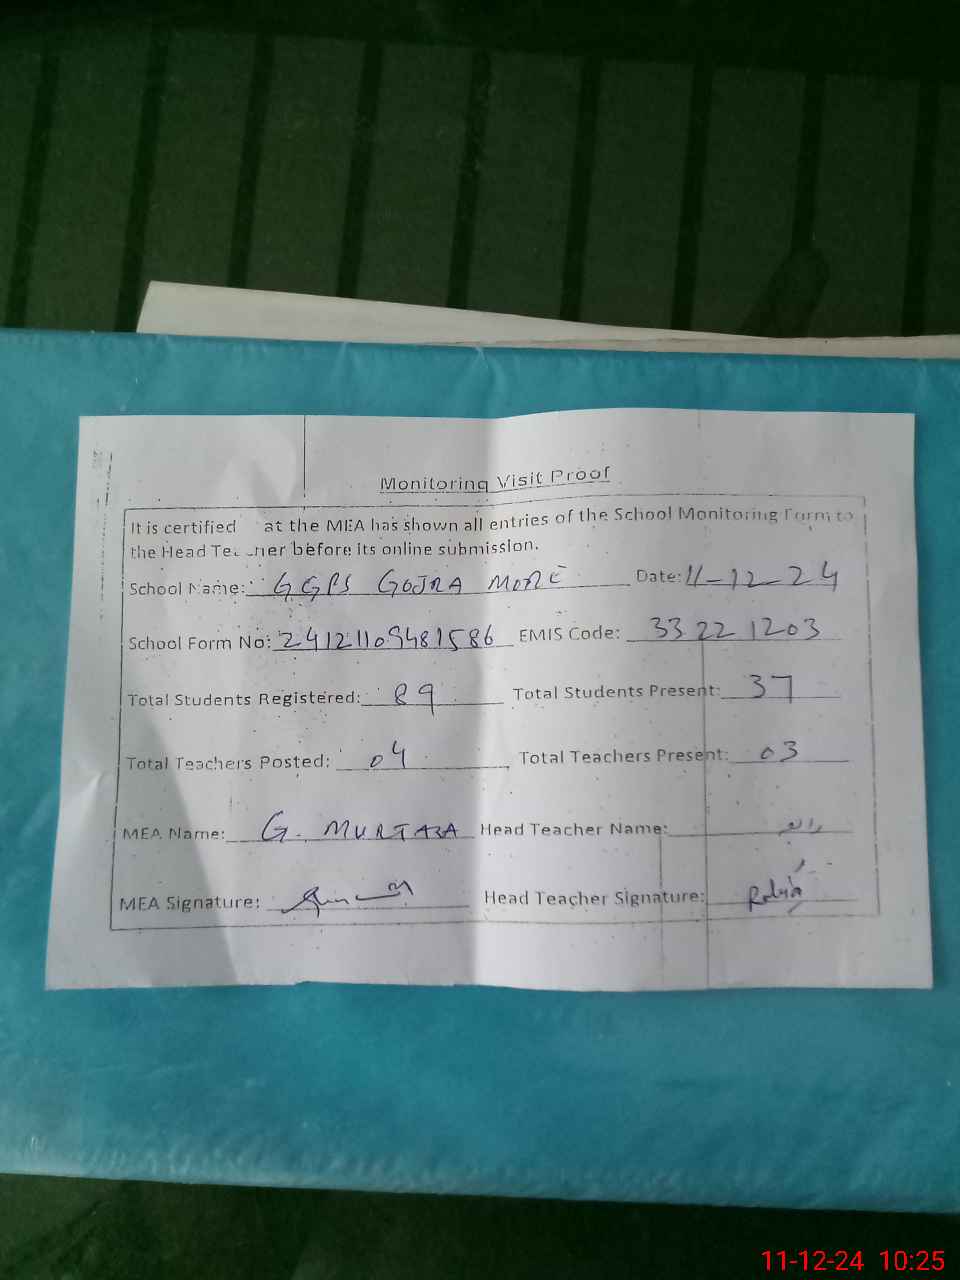 Monitoring Visit Proof
It is certified at the MEA has shown all entries of the School Monitoring Form to
the Head Teacher before its online submission.
School Name: GGPS GOJRA MORE Date: 11-12-24
School Form No: 24121109481586 EMIS Code: 33221203
Total Students Registered: 89 Total Students Present: 37
Total Teachers Posted: 04 Total Teachers Present: 03
MEA Name: G. MURTAZA Head Teacher Name:
MEA Signature: Head Teacher Signature: Rabia
11-12-24 10:25